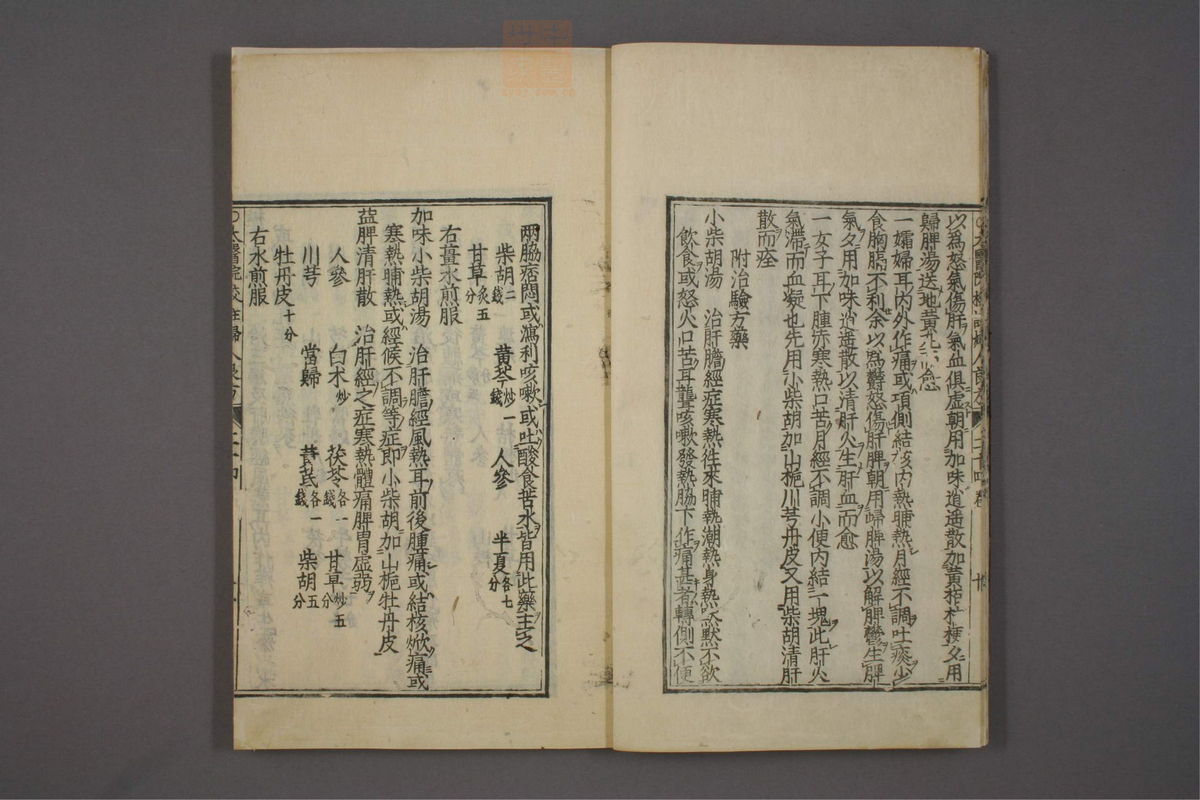 以為怒氣傷肝氣血俱虛朝用加味逍遙散加黃柏桔梗夕用
歸脾湯送地黃丸而愈
一孀婦耳內外作痛或項側結核內熱晡熱月經不調吐痰少
食胸膈不利余以為鬱怒傷肝脾朝用歸脾湯以解脾鬱生脾
氣夕用加味逍遙散以清肝火生肝血而愈
一女子耳下腫赤寒熱口苦月經不調小便內結一塊此肝火
氣滯而血凝也先用小柴胡加山梔川芎丹皮又用柴胡清肝
散而痊
附治驗方藥
小柴胡湯 治肝膽經症寒熱徃來晡熱潮熱身熱默默不欲
飲食或怒火口苦耳聾咳嗽發熱脇下作痛甚者轉側不便
兩脇痞悶或瀉利咳嗽或吐酸食苦水皆用此藥主之
柴胡二錢 黃芩炒一錢 人參 半夏各七分
甘草炙五分
右薑水煎服
加味小柴胡湯 治肝膽經風熱耳前後腫痛或結核焮痛或
寒熱晡熱或經候不調等症即小柴胡加山梔牡丹皮
益脾清肝散 治肝經之症寒熱體痛脾胃虛弱
人參 白朮炒 茯苓各一錢 甘草炒五分
川芎 當歸 黃芪各一錢 柴胡五分
牡丹皮十分
右水煎服
太醫院校註婦人良方 二十四